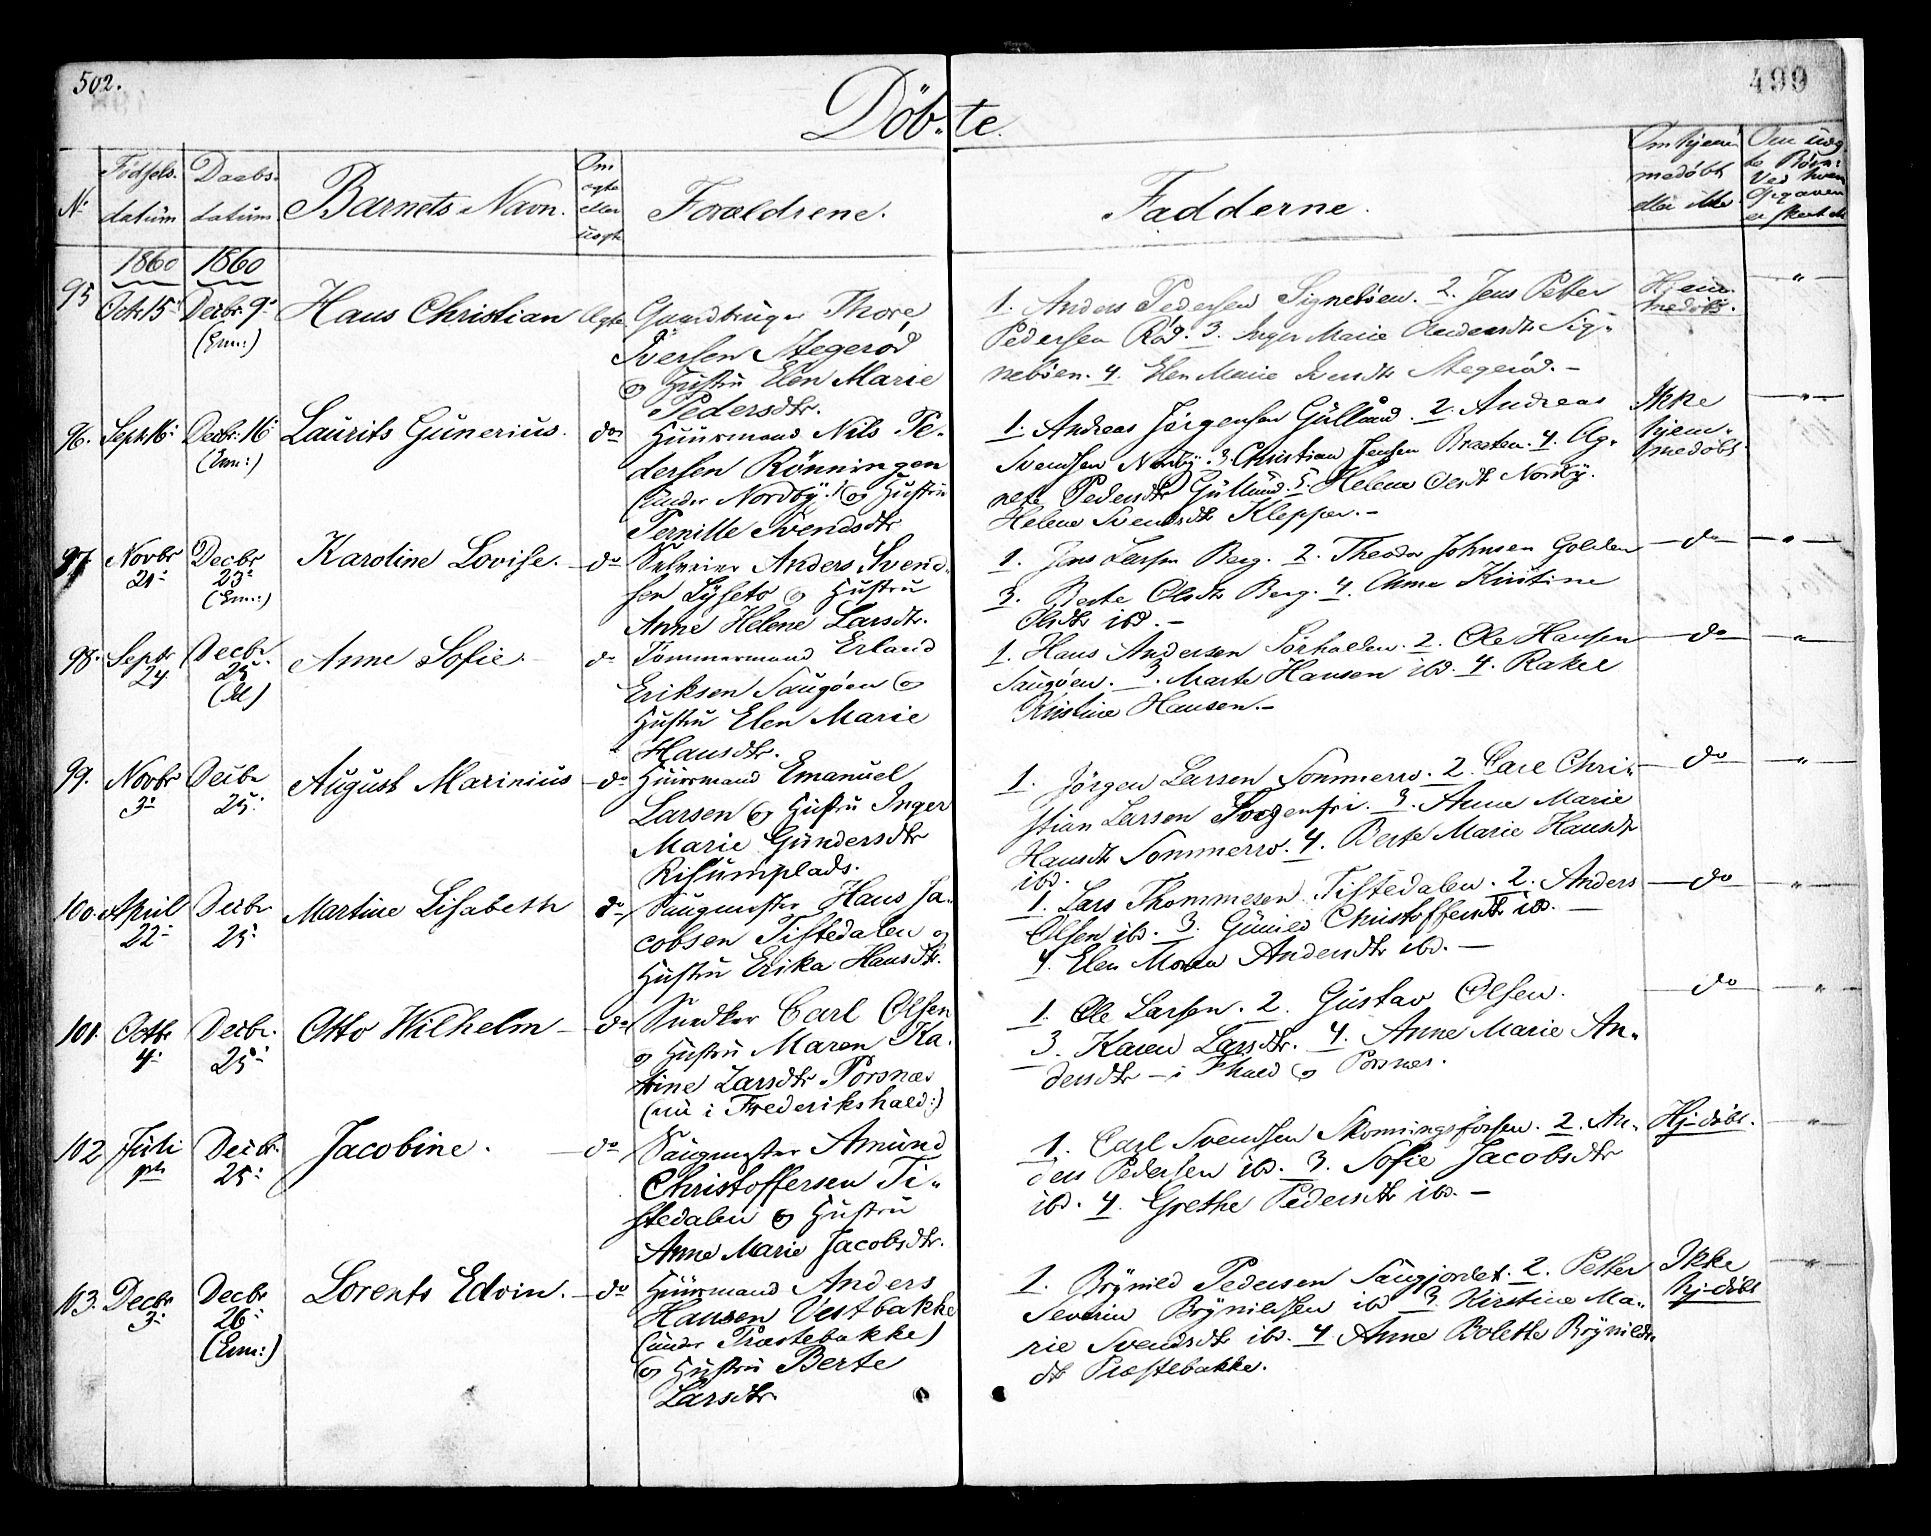 502.
499
Döbte.
No
Födsels-
datum
Daabs-
datum
Barnets Navn.
Om
egte
eller
uegte
Forældrene.
Fadderne.
Om hjem̄e
medöbt
eller ikke
1860 1860
95 Octr 15: Decbr 9: (Enn:) Hans Christian Ægte Gaardbruger Thore
Iversen Stegeröd
og Hustru Elen Marie
Pedersdtr.
1. Anders Pedersen Signeböen. 2. Jens Petter
Pedersen Röd. 3. Inger Marie Andersdtr Sig-
neböen. 4. Elen Marie Iversdtr Stegeröd.-
Hjem-
medöbt. "
96. Septr 16: Decbr: 16: (Enn:) Laurits Gunerius. do Huusmand Nils Pe-
dersen Rönningen
(under Nordby.) og Hustru
Pernille Svendsdtr
1. Andreas Jørgensen Gullund. 2. Andreas
Svendsen Nordby. 3. Christian Jensen Braaten. 4. Ag-
nete Pedersdtr Gullund. 5. Helene Olsdtr Nordby.
Helene Svendsdtr Klepper.-
Ikke
hjem-
medöbt "
97. Novbr 21: Decbr 23: (Enn:) Karoline Lovise. do Selveier Anders Svend-
sen Lyseto og Hustru
Anne Helene Larsdtr.
1. Jens Larsen Berg. 2. Theodor Johnsen Golden
3. Berte Olsdtr Berg. 4. Anne Kirstine
Olsdtr ibd.-
do "
98. Septr. 24 Decbr 25: (Id) Anne Sofie. do Tömmermand Erland
Eriksen Saugöen og
Hustru Elen Marie
Hansdtr.
1. Hans Andersen Sörhallen. 2. Ole Hansen
Saugöen. 3. Marte Hansen ibd. 4. Rakel
Kristine Hansen.-
do "
99. Novbr 3: Decbr 25: August Marinius do Huusmand Emanuel
Larsen og Hustru Inger
Marie Gundersdtr
Risumplads.
1. Jörgen Larsen Sommerro. 2. Carl Chri-
stian Larsen Sorgenfri. 3. Anne Marie
Hansdtr Sommerro. 4. Berte Marie Hansdtr
ibd.
do "
100. April 22: Decbr 25: Martine Lisabeth do Saugmester Hans Ja-
cobsen Tistedalen og
Hustru Erika Hansdtr.
1. Lars Thommesen Tistedalen. 2. Anders
Olsen ibd. 3. Gunild Christoffersdtr ibd.-
4. Elen Maria Andersdtr ibd.-
do "
101. Octbr 4: Decbr. 25: Otto Wilhelm do Snedker Carl Olsen
og Hustru Maren Ka-
trine Larsdtr Porsnæs
(nu i Frederikshald:)
1. Ole Larsen. 2. Gustav Olsen.
3. Karen Larsdtr. 4. Anne Marie An-
dersdtr - i Fhald og Porsnæs.
do "
102 Juli Decbr. 25: Jacobine. do Saugmester Amund
Christoffersen Ti-
stedalen og Hustru
Anne Marie Jacobsdtr.
1. Carl Svendsen Skonningsfossen. 2. An-
ders Pedersen ibd. 3. Sofie Jacobsdtr
ibd. 4. Grethe Pedersdtr ibd.-
Hj-döbt. "
103. Decbr 3: Decbr 26: (Enn:) Lorents Edvin. do Huusmand Anders
Hansen Vestbakke
(under Præstebakke)
og Hustru Berte
Larsdtr.
1. Brynild Pedersen Saugjordet. 2. Petter
Severin Brynildsen ibd 3. Kirstine Ma-
rie Svendsdtr ibd. 4. Anne Bolette Brynilds-
dtr Præstebakke.
Ikke
Hj-döbt "